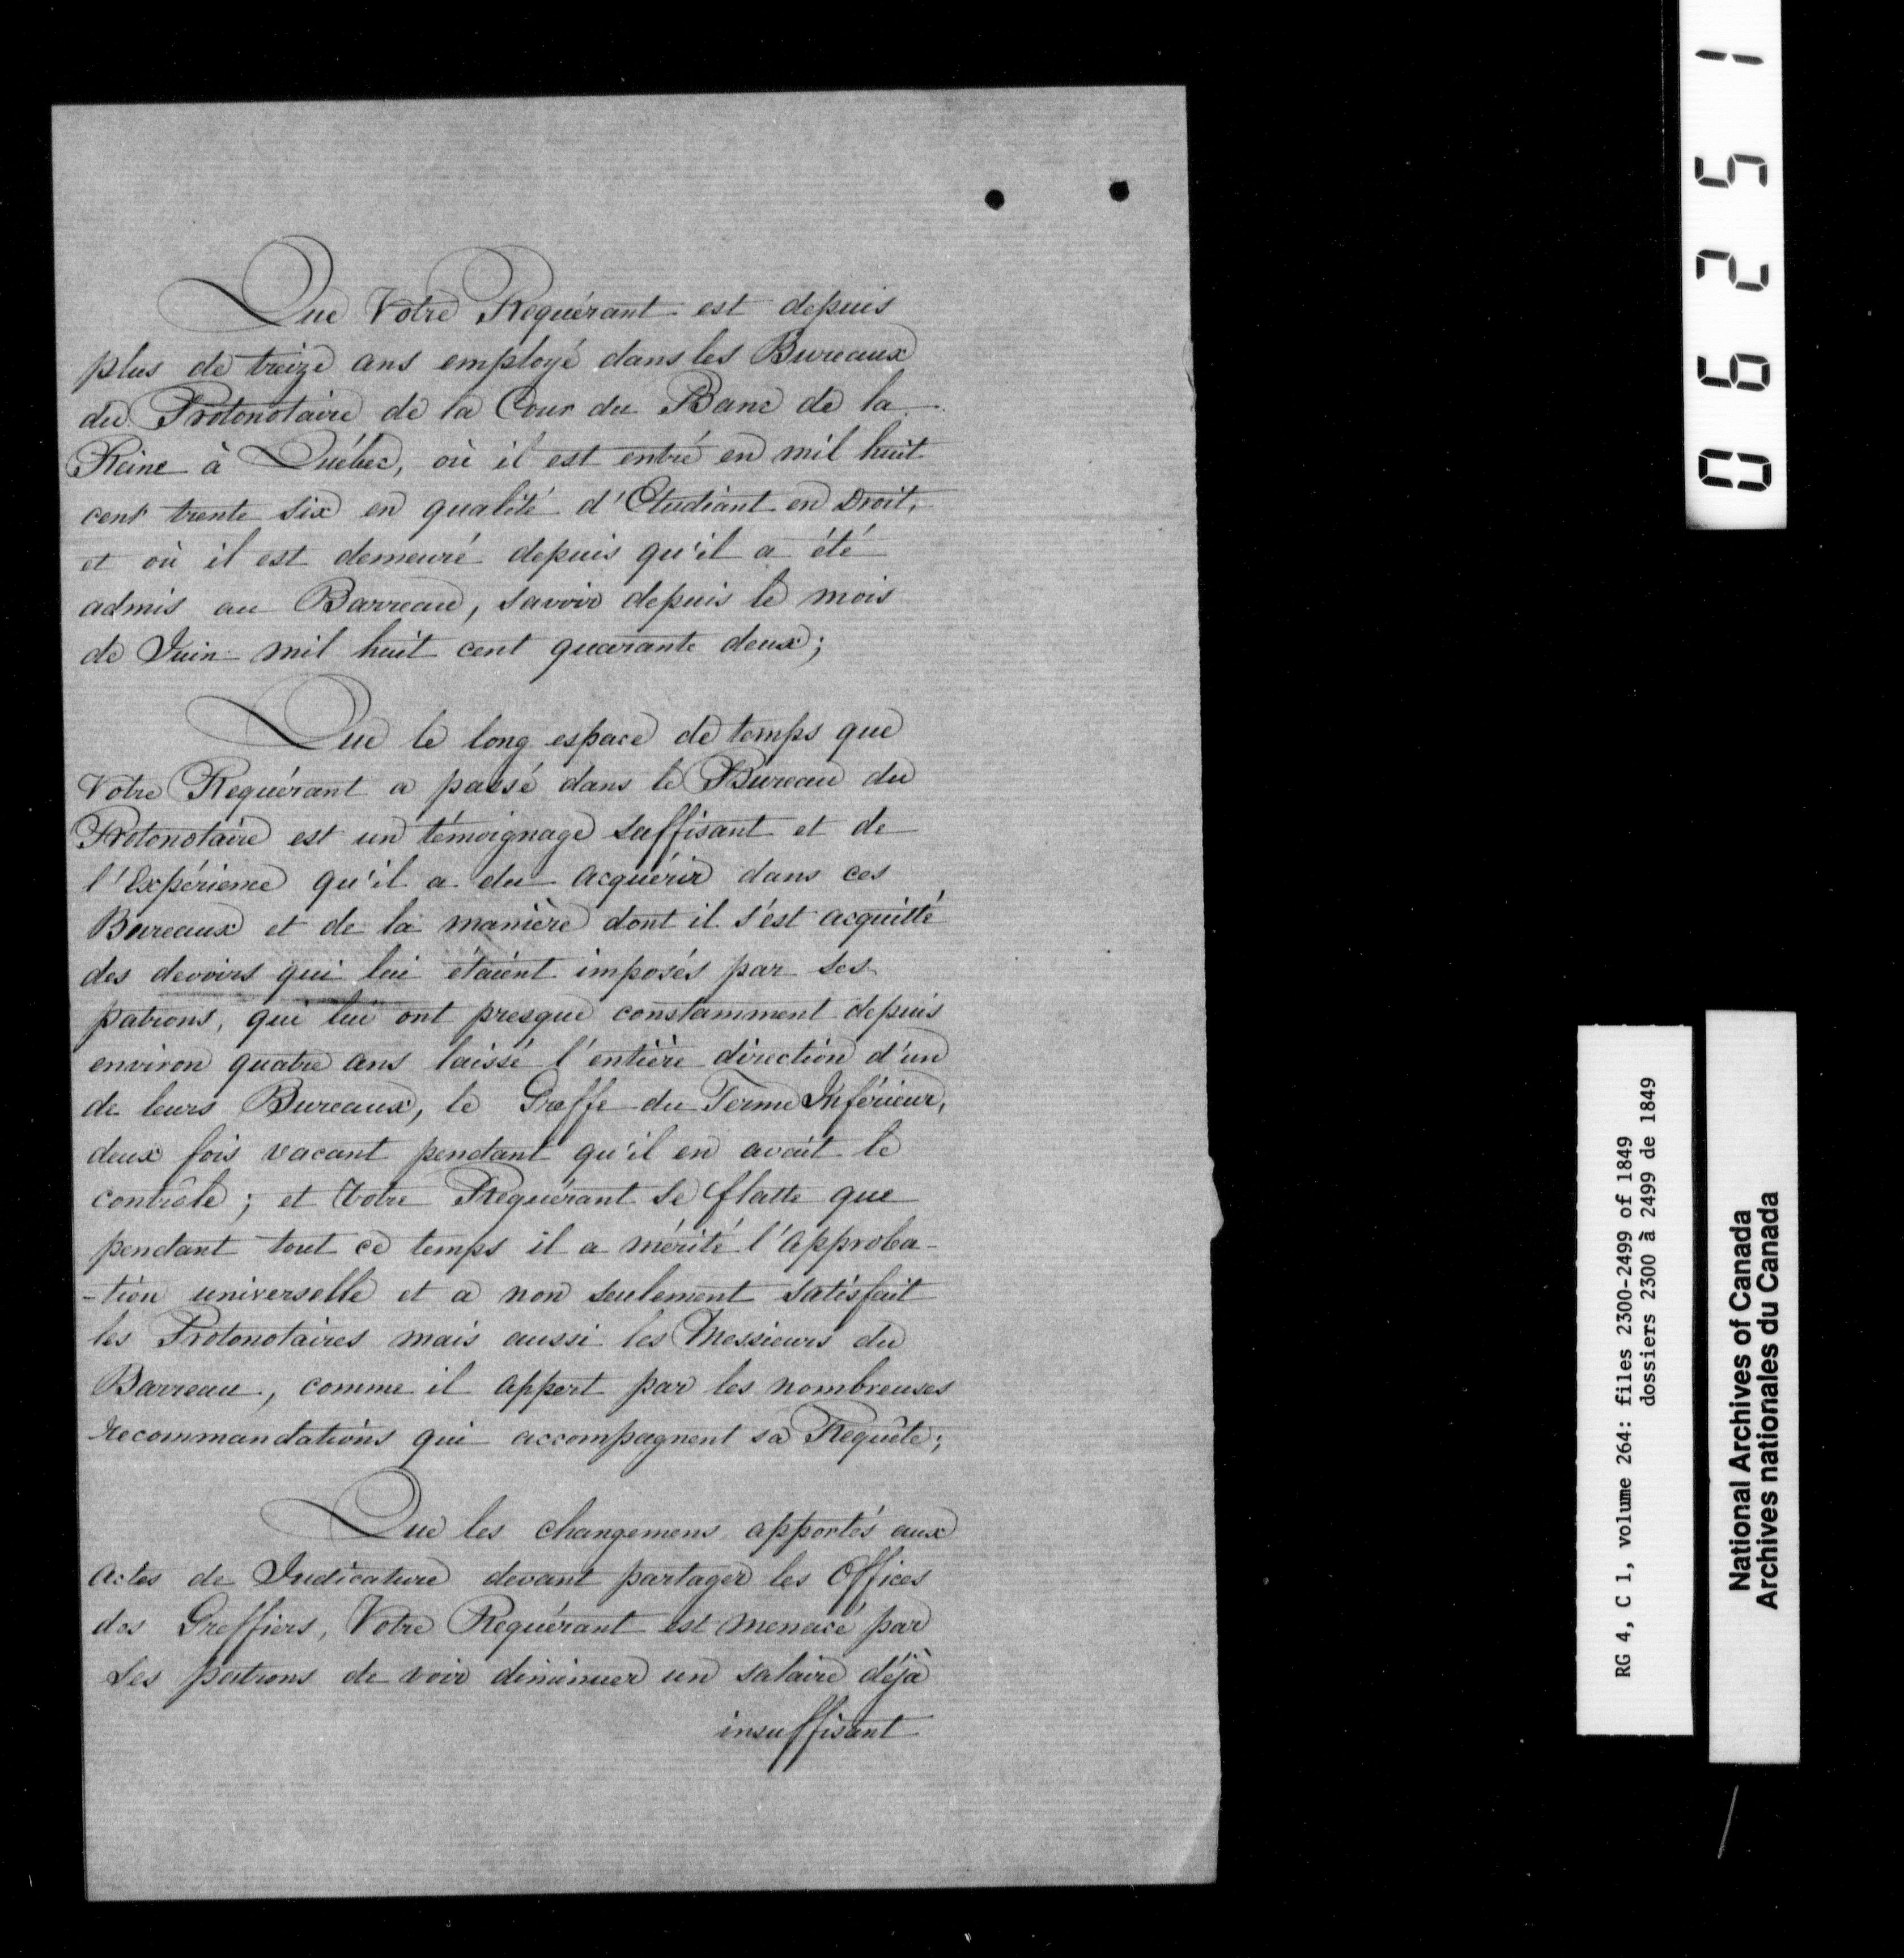 Que Votre Requérant est depuis
plus de treize ans employé dans les Bureaux
du Protonotaire de la Cour du Banc de la
Reine à Québec, où il est entré en mil huit
cent trente six en qualité d'Etudiant en Droit,
et où il est demeuré depuis qu'il a été
admis au Barreau, savoir depuis le mois
de Juin mil huit cent quarante deux;
Que le long espace de temps que
Votre Requérant a passé dans le Bureau du
Protonotaire est un témoignage suffisant et de
l'Expérience qu'il a du acquérir dans ces
Bureaux et de la manière dont il s'est acquitté
des devoirs qui lui étaient imposés par ses
patrons, qui lui ont presque constamment depuis
environ quatre ans laissé l'entière direction d'un
de leurs Bureaux, le Greffe du Terme Inférieur,
deux fois vacant pendant qu'il en avait le
contrôle; et Votre Requérant se flatte que
pendant tout ce temps il a mérité l'approba-
-tion universelle et a non seulement satisfait
les Protonotaires mais aussi les Messieurs du
Barreau, comme il appert par les nombreuses
recommandations qui accompagnent sa Requête;
Que les changemens apportés aux
actes de Judicature devant partager les Offices
des Greffiers, Votre Requérant est menacé par
ses patrons de voir diminuer un salaire déjà
insuffisant
06251
RG 4, C 1, volume 264: files 2300-2499 of 1849
dossiers 2300 à 2499 de 1849
National Archives of Canada
Archives nationales du Canada